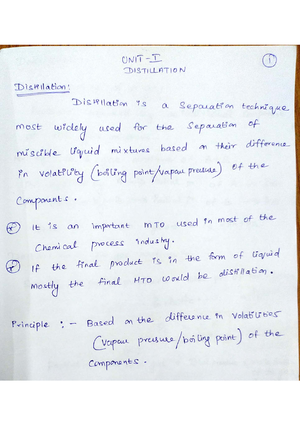 UNIT-I
①
DISTILLATION
Distillation:
Distillation is a Separation technique
most widely used for the Separation of
miscible liquid mixtures based on their difference
in volatility (boiling point/vapour pressure) of the
Components.
It is an important MTO used in most of the
Chemical process industry.
If the final product is in the form of liquid
mostly the final MTO would be distillation.
Principle :- Based on the difference in volatilities
(vapour pressure/boiling point) of the
Components.